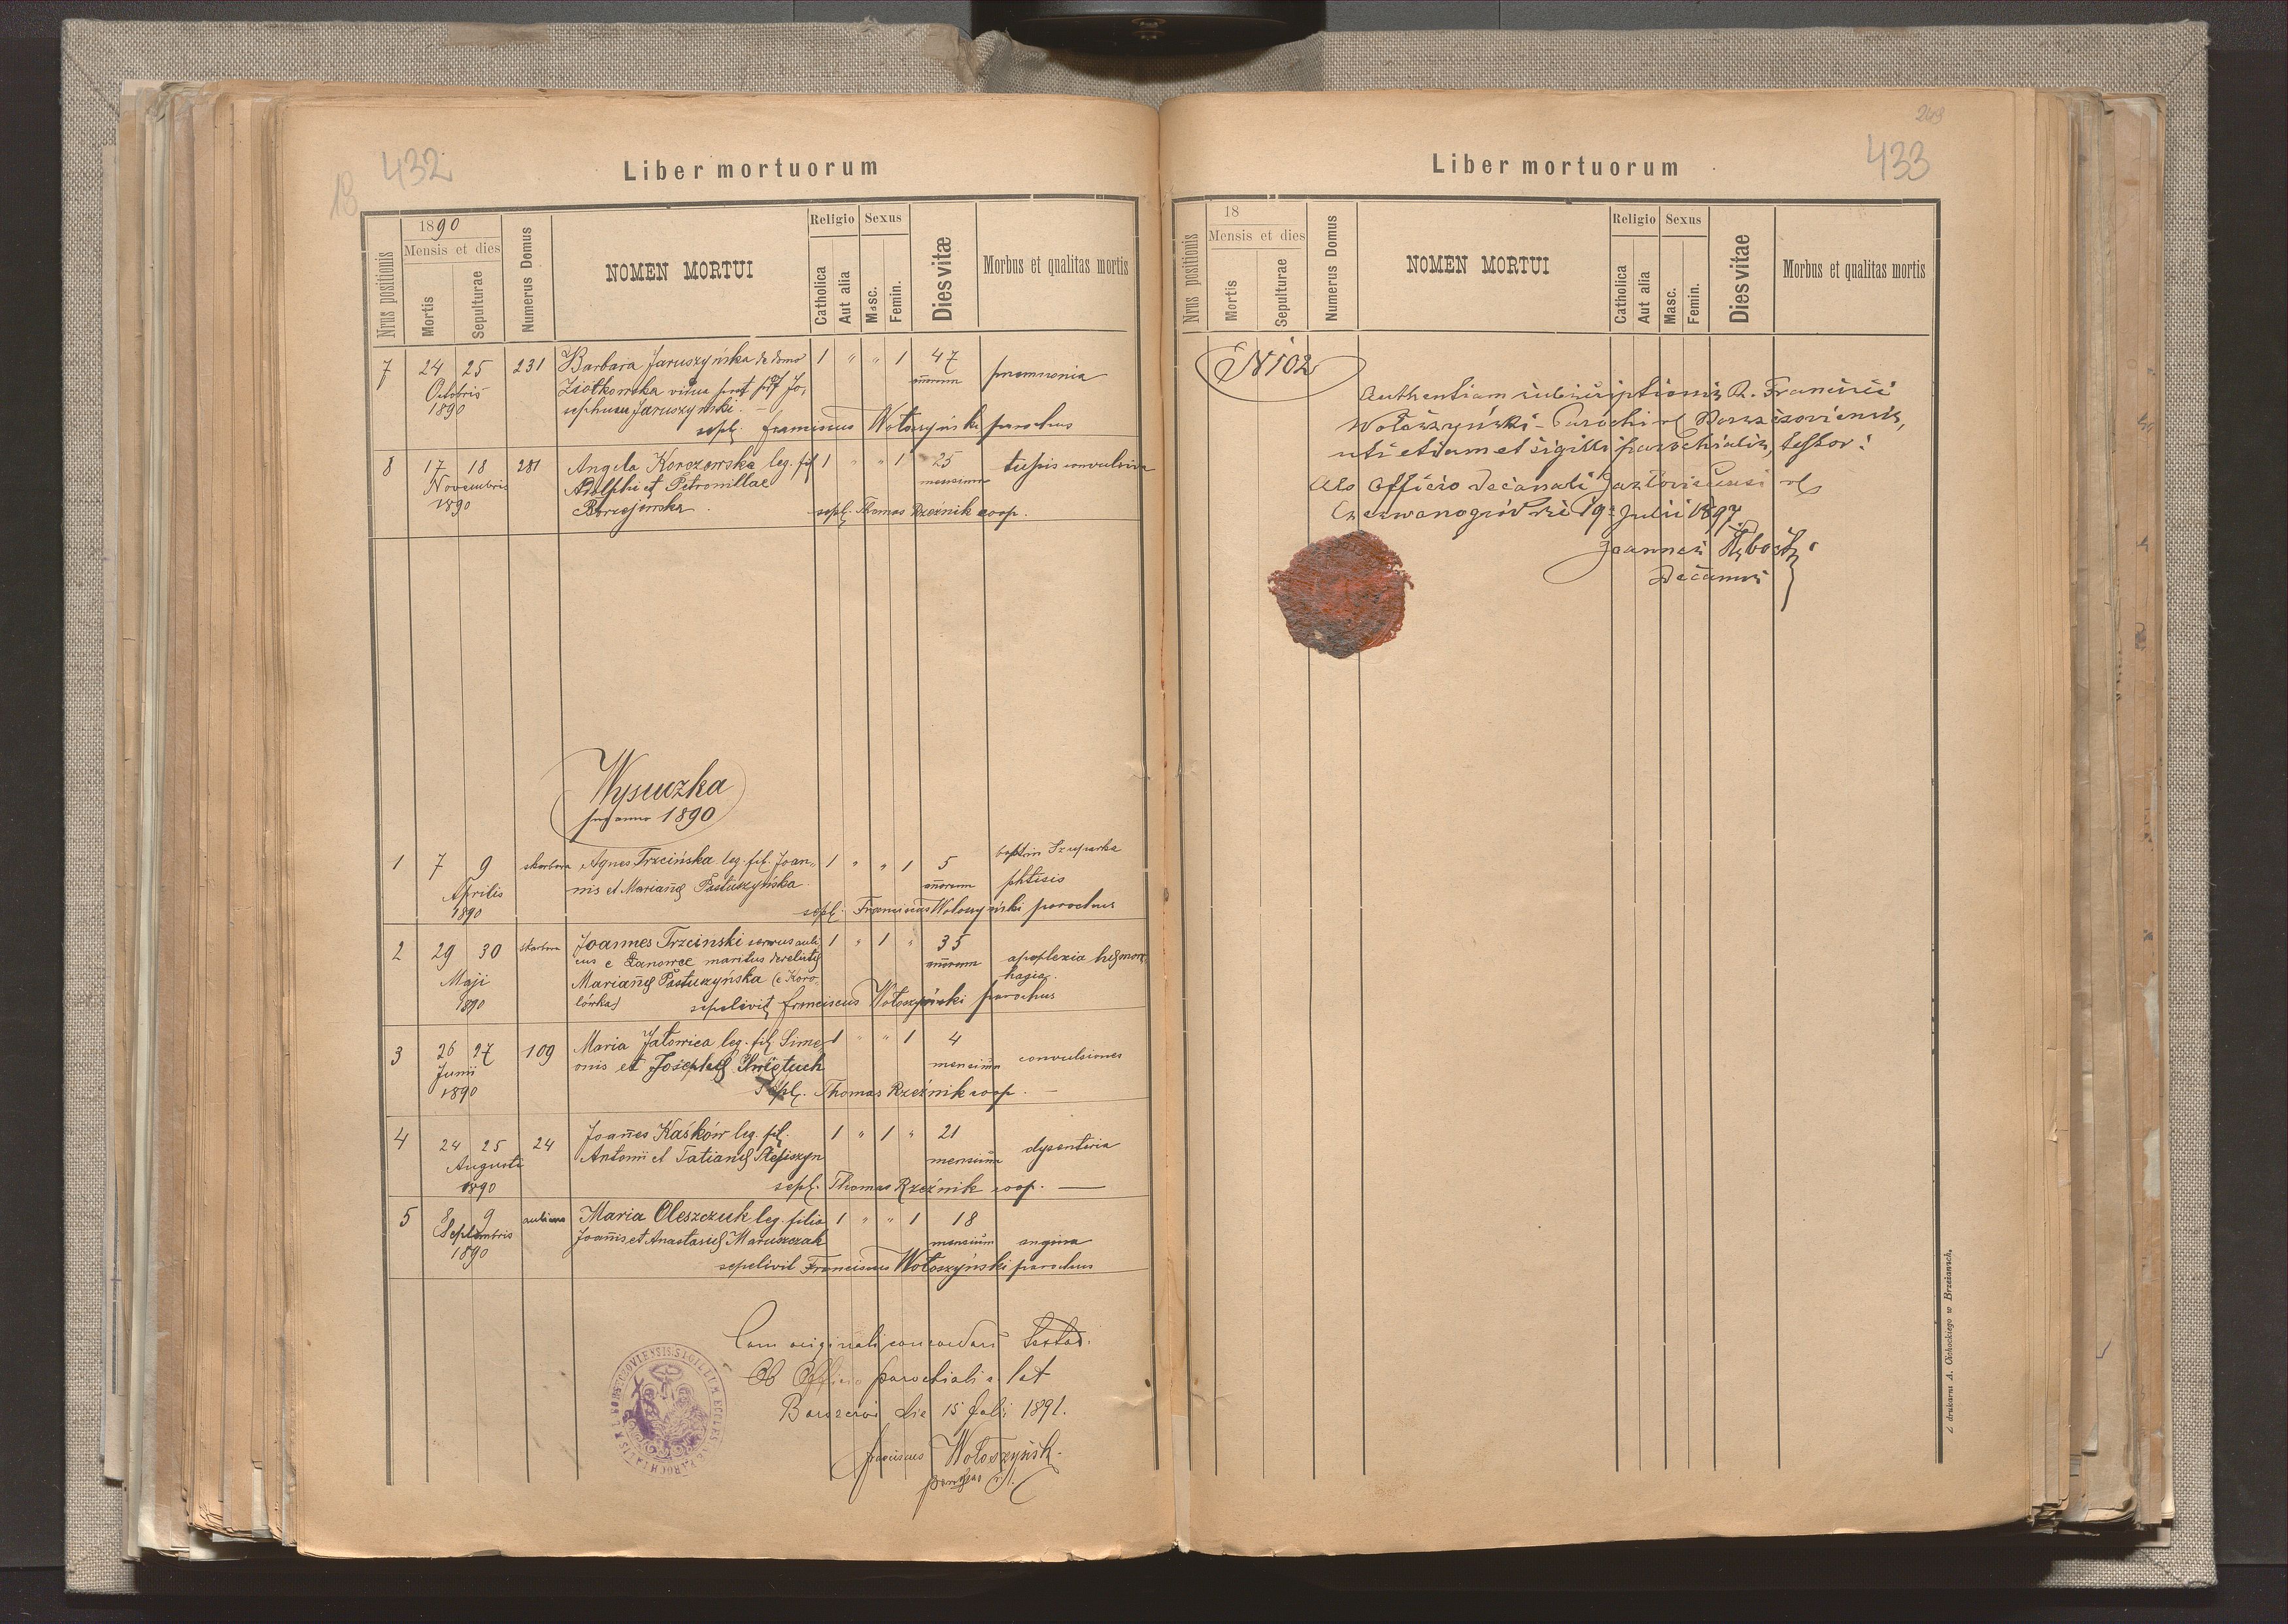 432
Liber mortuorum
Nrus positionis
1890
Mensis et dies
Mortis
Sepulturae
Numerus Domus
NOMEN MORTUI
Religio
Catholica
Aut alia
Sexus
Masc.
Femin.
Dies vitæ
Morbus et qualitas mortis
7 24 25 231 Barbara Jaruszyńska de domo 1 " " 1 47
Octobris Ziołkowska vidua post annorum
1890 sephum Jaruszyński.
sepl. Franciscus Wołoszyński parochus
8 17 18 281 Angela Korczowska leg. fil 1 " " 1 25 tussis convulsiva
Novembris Adolphi et Petronillae mensium
1890
sepl. Thomas Rzeźnik coop.
Wysuczka
pro anno 1890
1 7 9 skarbova Agnes Trzcińska leg. fil. Joan- 1 " " 1 5
Aprilis nis et Marianę Pastuszyńska annorum phtisis
1890 sepl. Franciscus Wołoszyński parochus
2 29 30 skarbova Joannes Trzcinski servus auli 1 " 1 " 35 apoplexia hęmorr
cus e Łanowce maritus derelictę annorum hagia
Maji Marianę Pastuszyńska (e Koro-
1890 lówka) sepelivit Franciscus Wołoszyński parochus
3 26 27 109 Maria Jatowica leg. fil. Sime 1 " " 1 4 convulsiones
Junii onis et Josephę mensium
1890 Sepl. Thomas Rzeźnik coop.
4 24 25 24 Joannes Kaśków leg. fil. 1 " 1 " 21 dysenteria
Augusti Antonii et Tatianę Stefiszyn mensium
1890 sepl. Thomas Rzeźnik coop.
5 8 9 Maria Oleszczuk leg. filia 1 " " 1 18
Septembris Joannis et Anastasię Maruszczak mensium angina
1890 sepelivit Franciscus Wołoszyński parochus
Cum originali concordare testor.
Ab Officio parochiali r. lat
die 15 Juli 1891.
Franciscus Wołoszyński
243
433
Liber mortuorum
Nrus positionis
18
Mensis et dies
Mortis
Sepulturae
Numerus Domus
NOMEN MORTUI
Religio
Catholica
Aut alia
Sexus
Masc.
Femin.
Dies vitae
Morbus et qualitas mortis
N 102
Authentiam subscriptionis R. Francisci
Wołoszyński - Parochi rl Borszczoviensis,
uti etiam et sigilli parochialis, testor:
Ab Officio decanali Jazloviciensi rl
19 Julii 1897
Joannes
Decanus
Z drukarni A. Cichockiego w Brzeżanach.